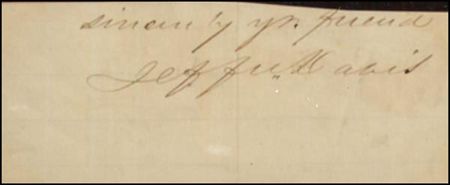 sincerely yr. friend
Jeffn. Davis